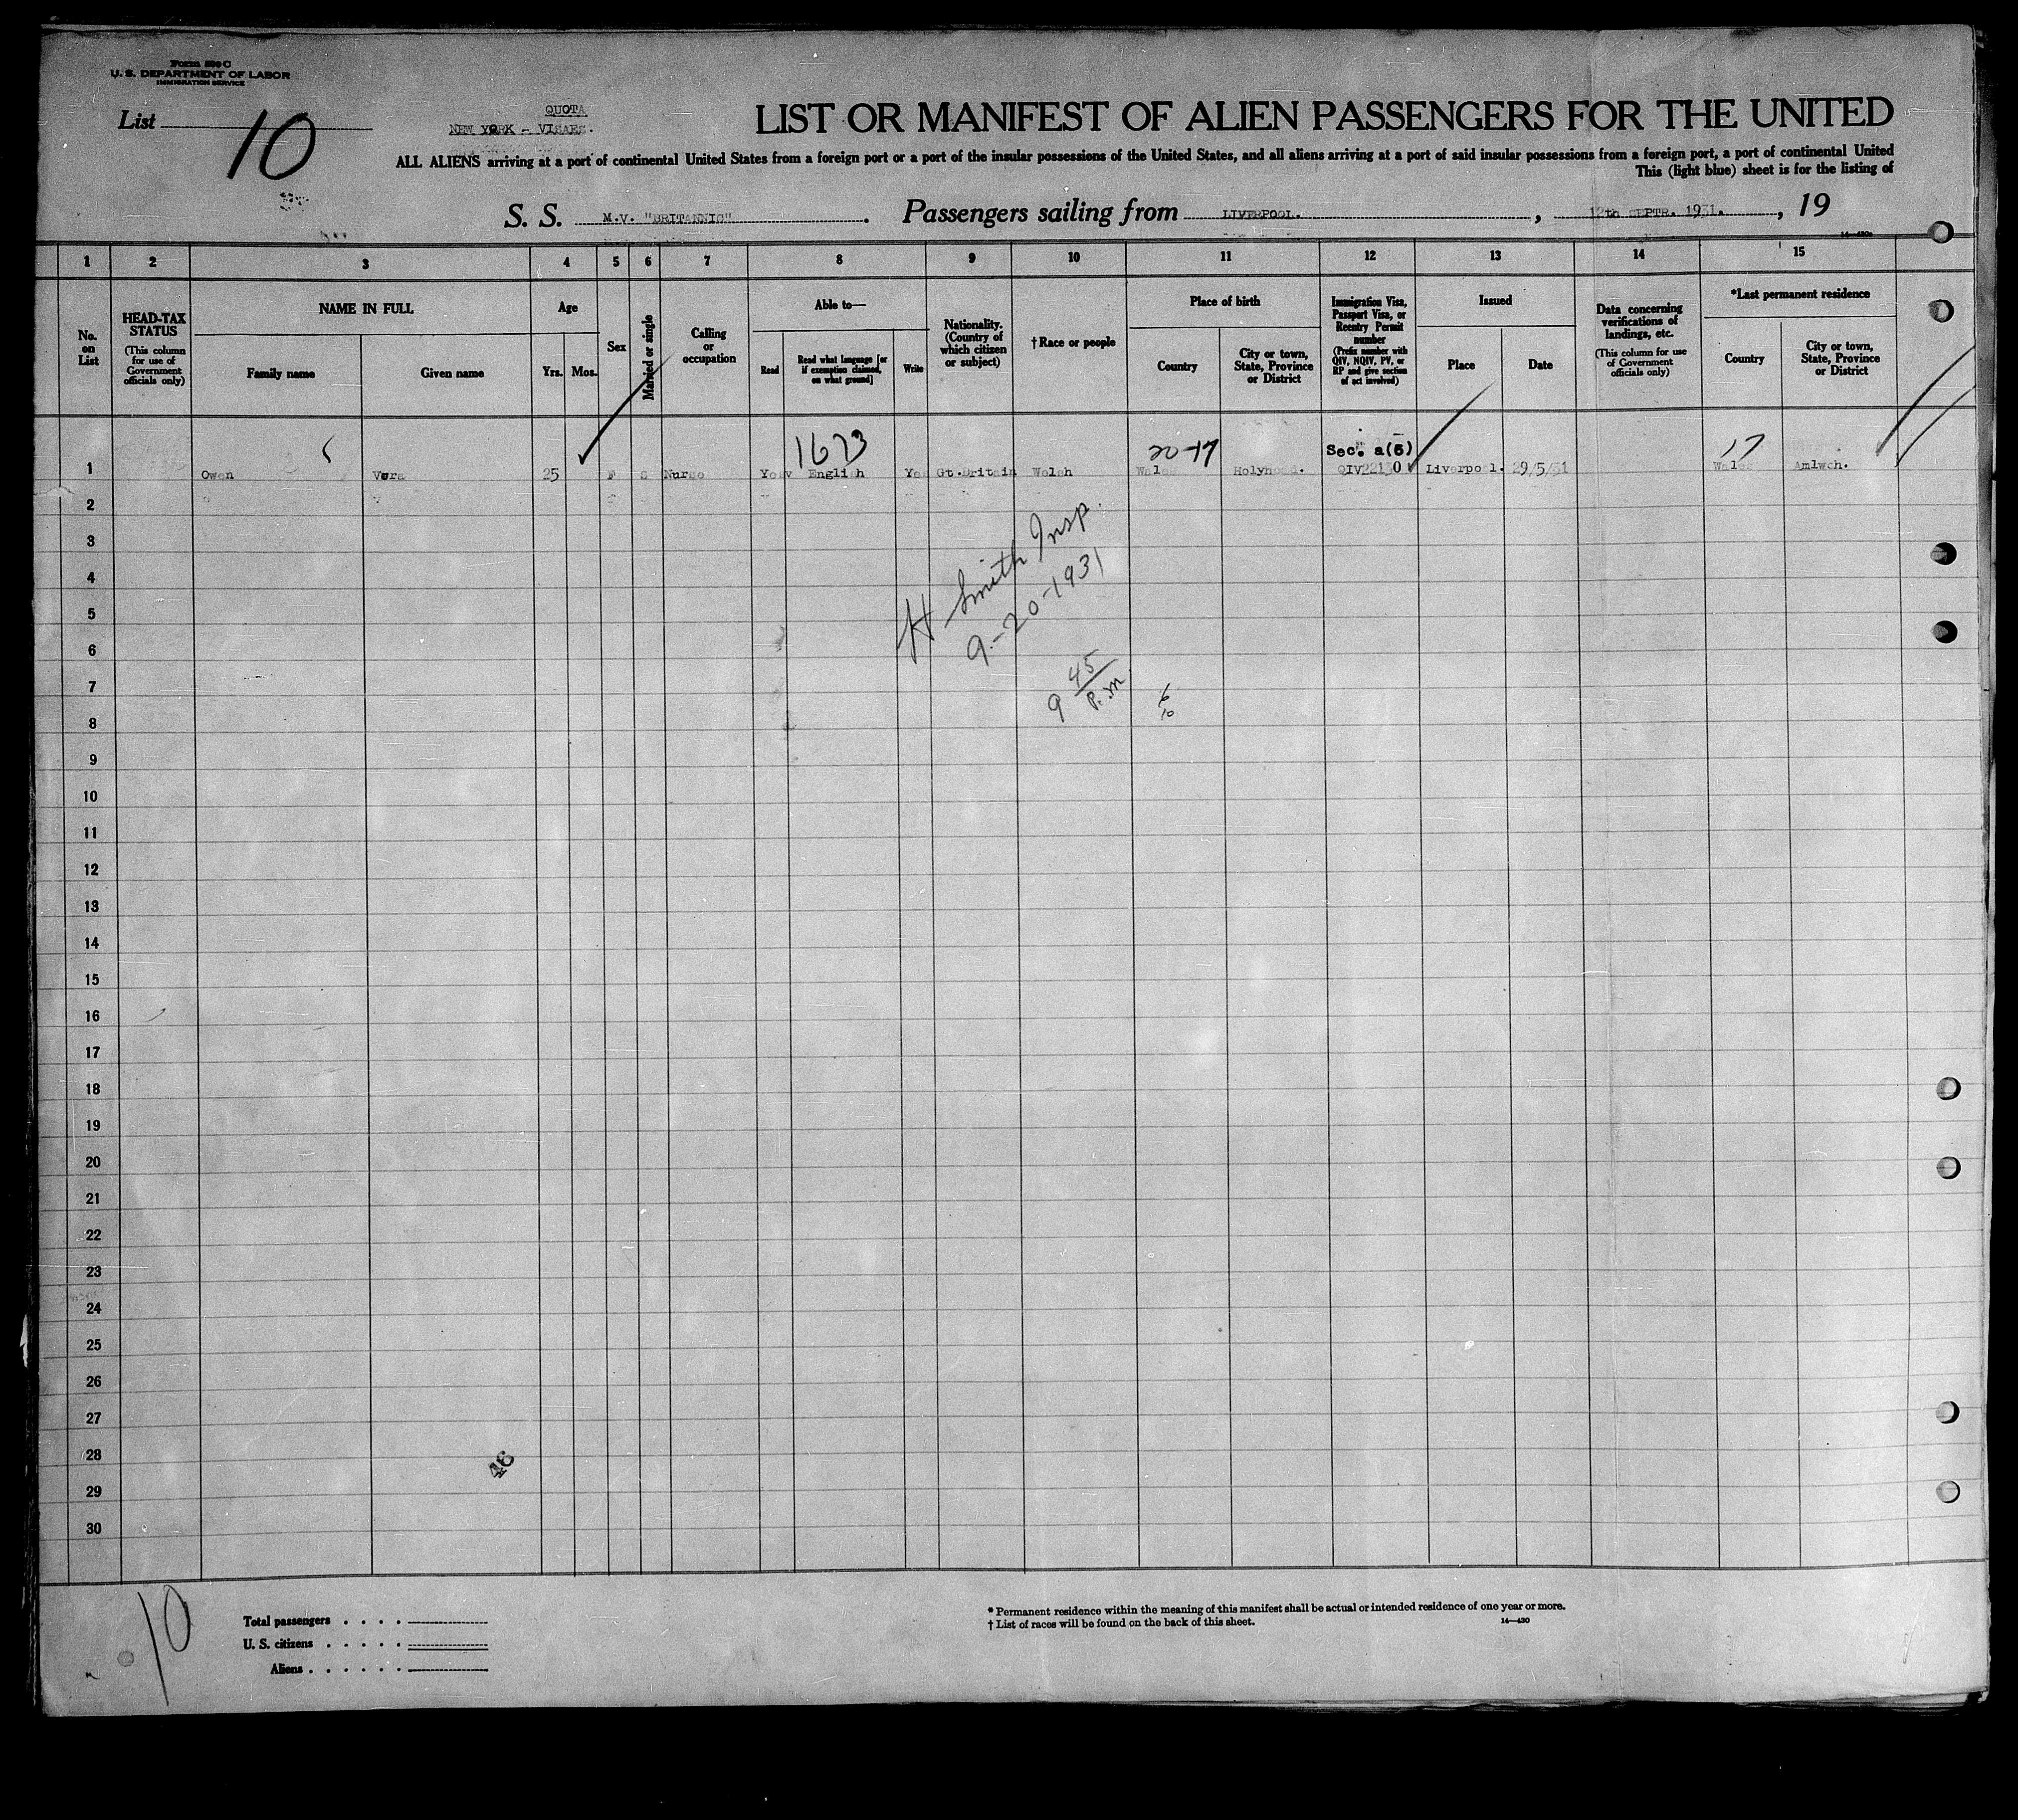 Form 500 C
U. S. DEPARTMENT OF LABOR
IMMIGRATION SERVICE
List 10
QUOTA
NEW YORK - VISAES.
LIST OR MANIFEST OF ALIEN PASSENGERS FOR THE UNITED
ALL ALIENS arriving at a port of continental United States from a foreign port or a port of the insular possessions of the United States, and all aliens arriving at a port of said insular possessions from a foreign port, a port of continental United
This (light blue) sheet is for the listing of
S. S. M.V. "BRITANNIC". Passengers sailing from LIVERPOOL., 12th SEPTR. 1931., 19
14—430
1 2 3 4 5 6 7 8 9 10 11 12 13 14 15
No. on List
HEAD-TAX STATUS
(This column for use of Government officials only)
NAME IN FULL
Family name
Given name
Age
Yrs.
Mos.
Sex
Married or single
Calling or occupation
Able to—
Read
Read what language [or if exemption claimed, on what ground]
Write
Nationality. (Country of which citizen or subject)
†Race or people
Place of birth
Country
City or town, State, Province or District
Immigration Visa, Passport Visa, or Reentry Permit number
(Prefix number with QIV, NQIV, PV, or RP and give section of act involved)
Issued
Place
Date
Data concerning verifications of landings, etc.
(This column for use of Government officials only)
*Last permanent residence
Country
City or town, State, Province or District
1673 20-17 Sec. a(6) 17
1 Owen Vera 25 F S Nurse Yes English Yes Gt.Britain Welsh Wales Holyhead. QIV22130 Liverpool. 29/5/31 Wales Amlwch.
2
3
4
5
6
7
8
9
10
11
12
13
14
15
16
17
18
19
20
21
22
23
24
25
26
27
28
29
30
H Smith Insp.
9-20-1931
9 45/P.m
6
10
46
10
Total passengers
U. S. citizens
Aliens
* Permanent residence within the meaning of this manifest shall be actual or intended residence of one year or more.
† List of races will be found on the back of this sheet.
14—430